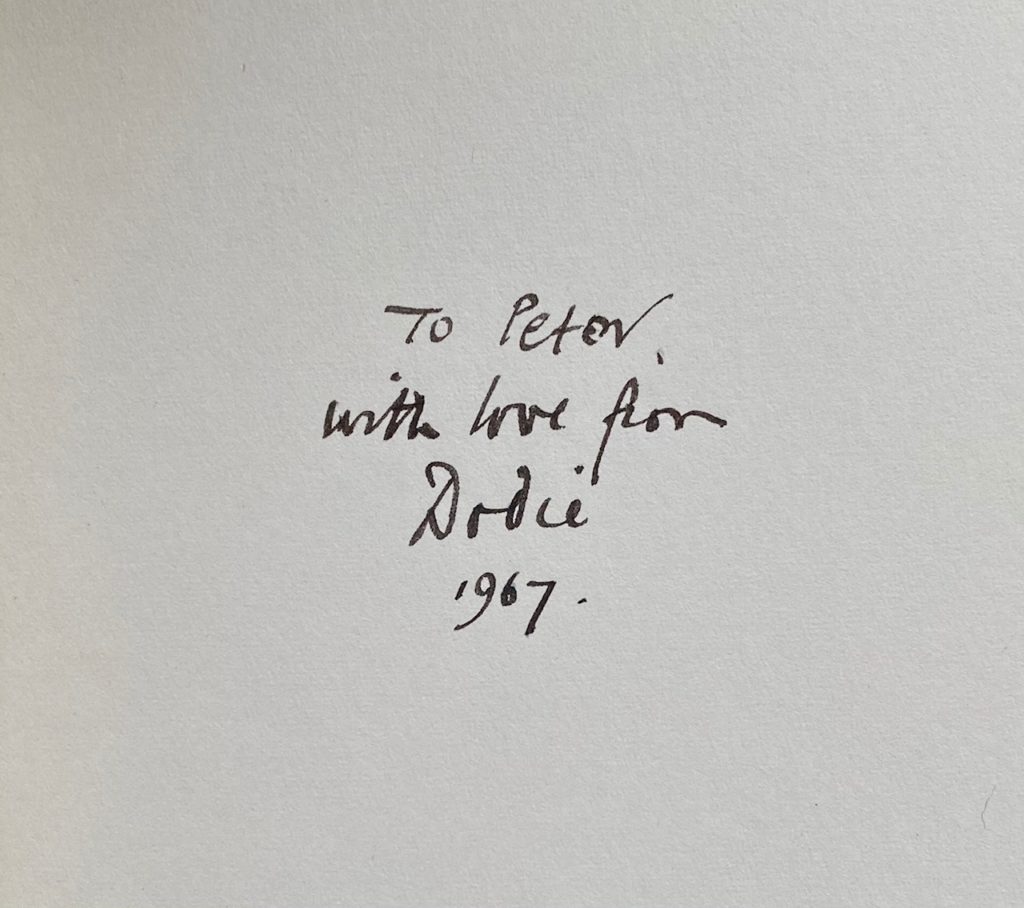 To Peter,
with love from
Dodie
1967.